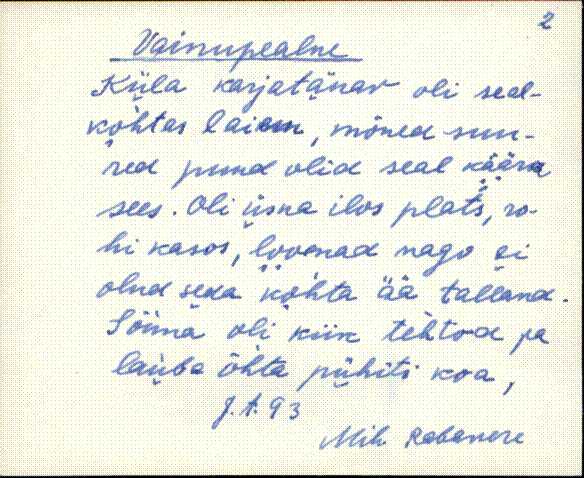 2
Vainupealne
Küla karjatänav oli seal-
kohtas laiem, mõned suu-
red puud olid seal kääru
sees. Oli üsna ilos plats, ro-
hi kasos, loomad nago ei
olnd seda kohta ää talland.
Sõina oli kiik tehtod ja
lauba õhta pühiti koa,
J. A. 93
Mih. Rabanere